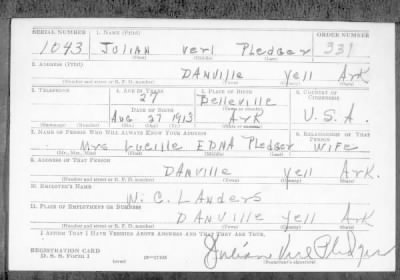 SERIAL NUMBER 1. NAME (Print) ORDER NUMBER
1043 Julian Verl Pledger 331
(First) (Middle) (Last)
2. ADDRESS (Print)
DANVILLE Yell ARK
(Number and street or R. F. D. number) (Town) (County) (State)
3. TELEPHONE 4. AGE IN YEARS 5. PLACE OF BIRTH 6. COUNTRY OF CITIZENSHIP
27 Belleville
DATE OF BIRTH (Town or county)
Aug 27 1913 ARK U.S.A.
(Exchange) (Number) (Mo.) (Day) (Yr.) (State or country)
7. NAME OF PERSON WHO WILL ALWAYS KNOW YOUR ADDRESS 8. RELATIONSHIP OF THAT PERSON
Mrs Lucille EDNA Pledger WIFE
(Mr., Mrs., Miss) (First) (Middle) (Last)
9. ADDRESS OF THAT PERSON
DANVILLE Yell ARK.
(Number and street or R. F. D. number) (Town) (County) (State)
10. EMPLOYER'S NAME
W. C. LANders
11. PLACE OF EMPLOYMENT OR BUSINESS
DANVILLE Yell ARK
(Number and street or R. F. D. number) (Town) (County) (State)
I AFFIRM THAT I HAVE VERIFIED ABOVE ANSWERS AND THAT THEY ARE TRUE.
REGISTRATION CARD
D. S. S. Form 1 Julian Verl Pledger
(over) (Registrant's signature)